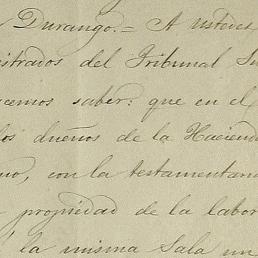 Durango.= A ustedes
istrados del Tribunal Su
cemos saber: que en el
los dueños de la Hacienda
no, con la testamentaria
propiedad de la labor
la misma Sala un